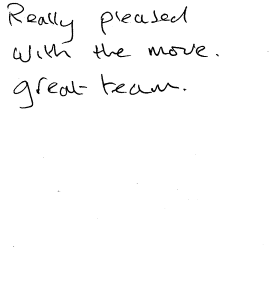 Really pleased
with the move.
great team.